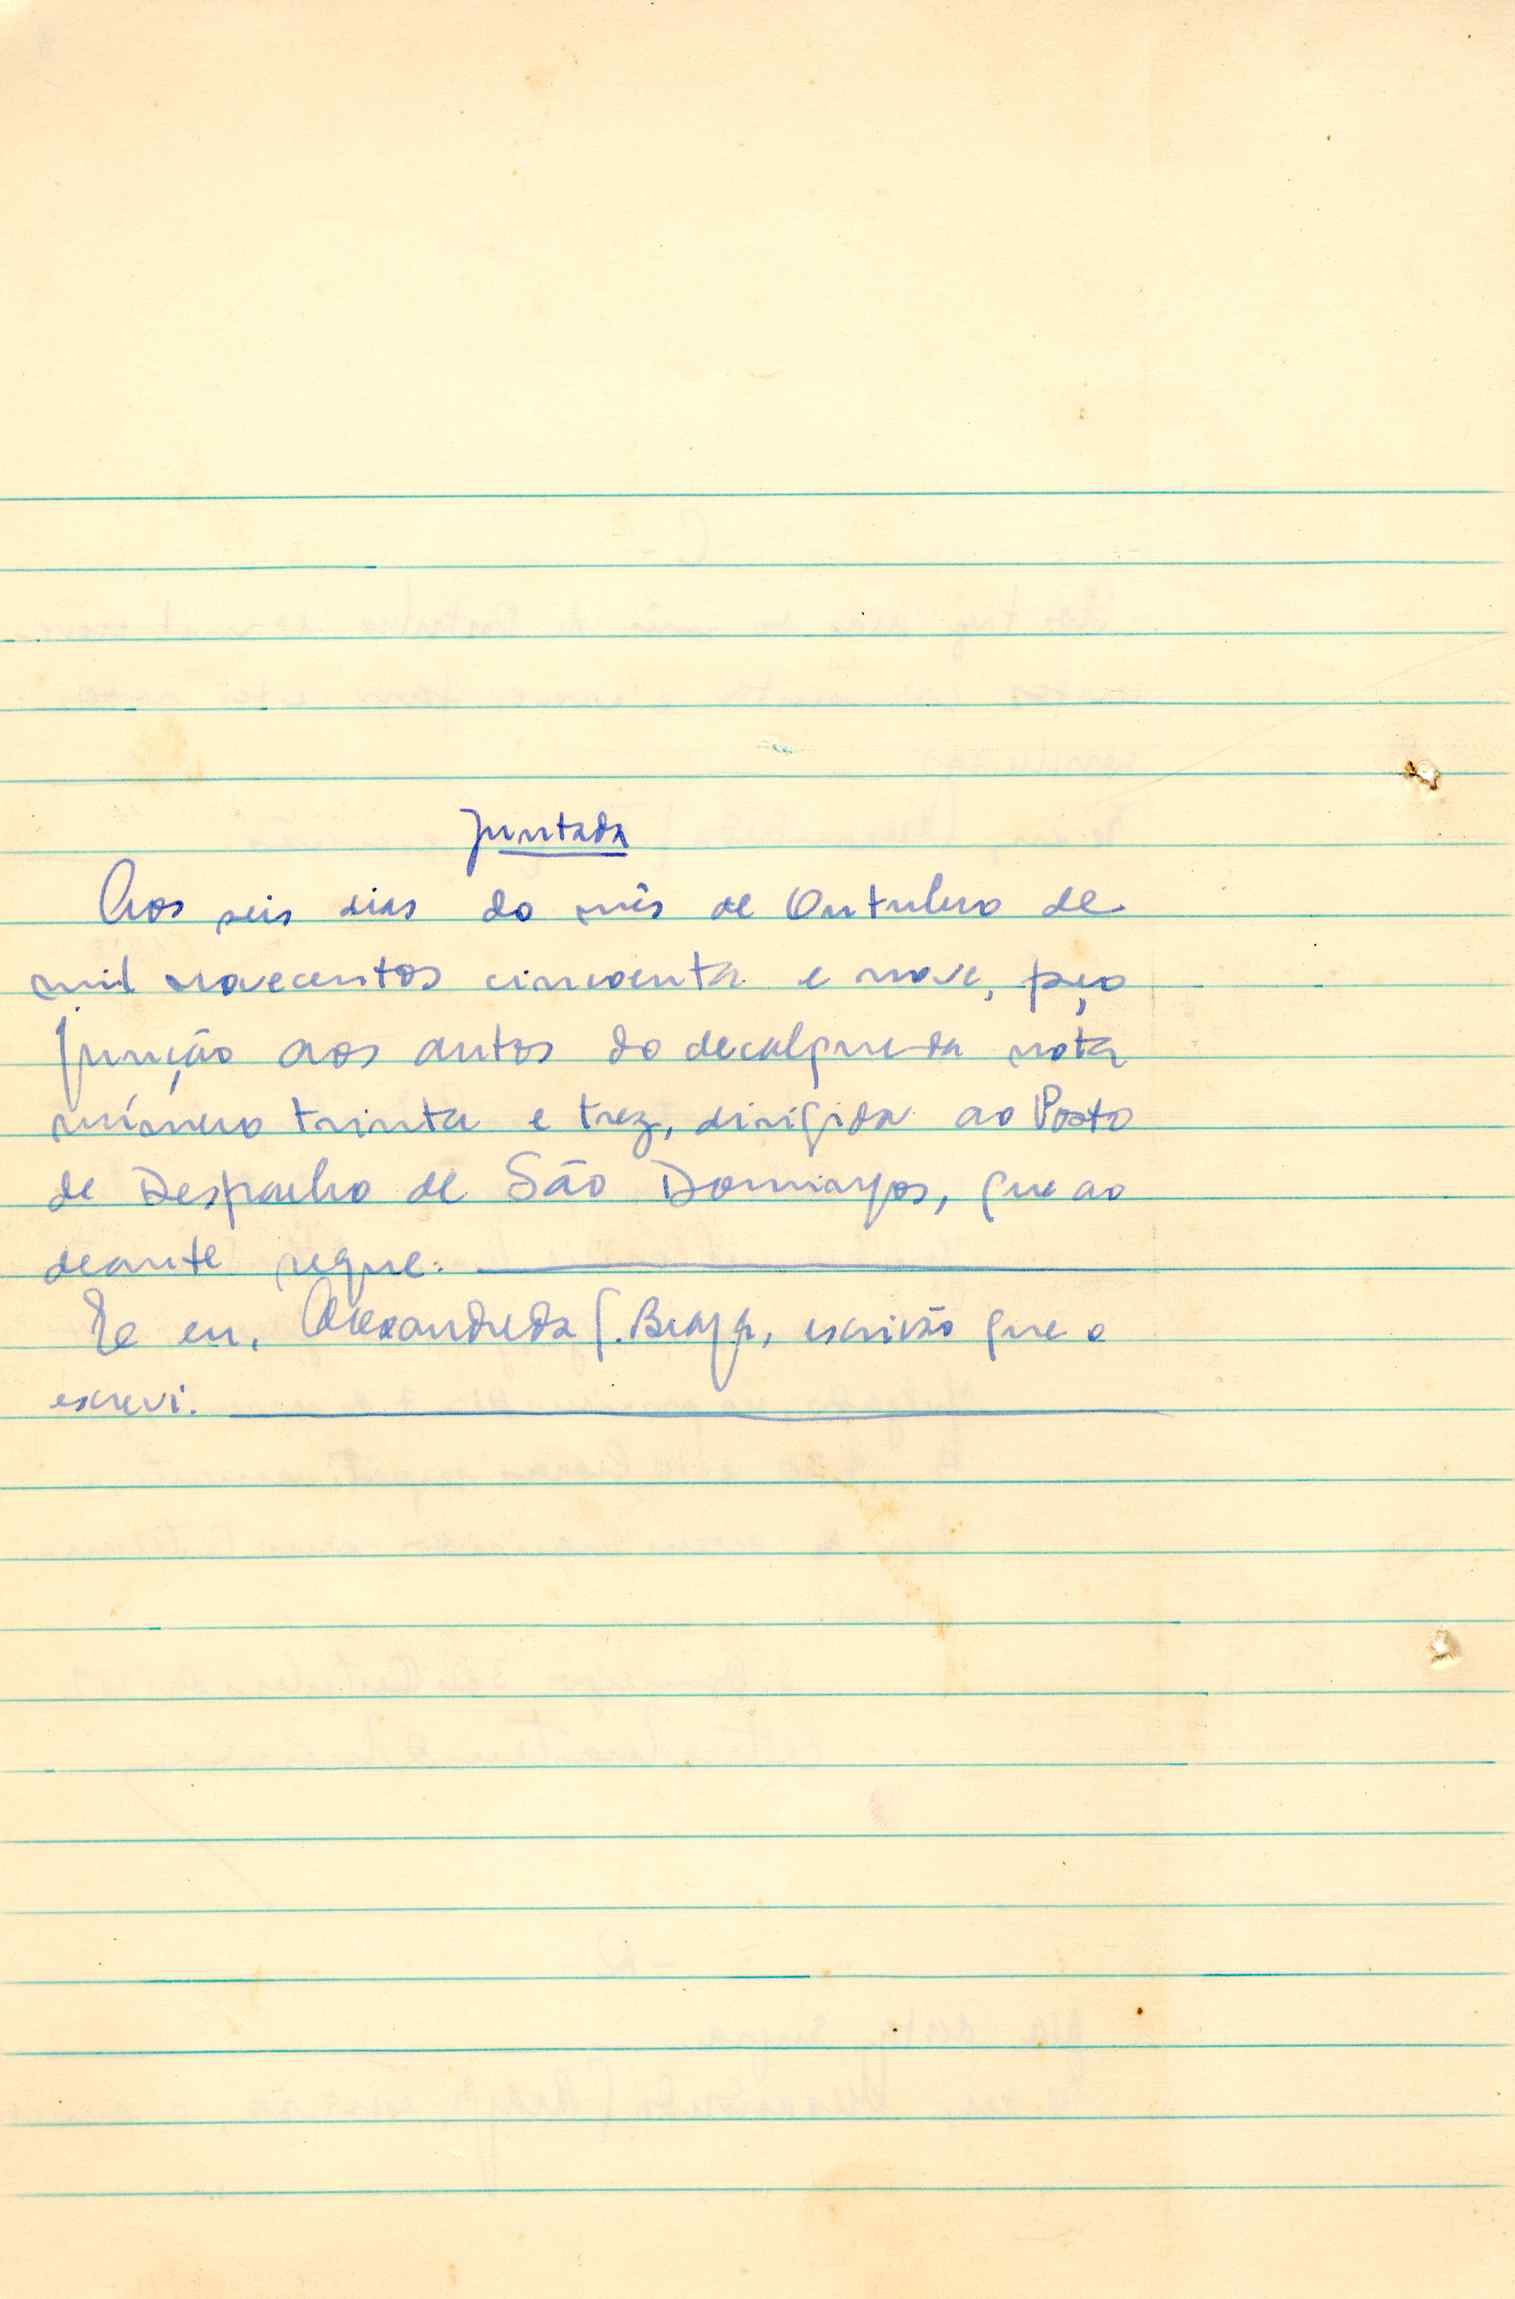 Juntada
Aos seis dias do mês de Outubro de
mil novecentos cincoenta e nove, peço
junção aos autos do decalque da nota
número trinta e trez, dirigida ao Posto
de Despacho de São Domingos, que ao
deante segue.
E eu, Alexandre da G. Braga, escrivão que o
escrevi.